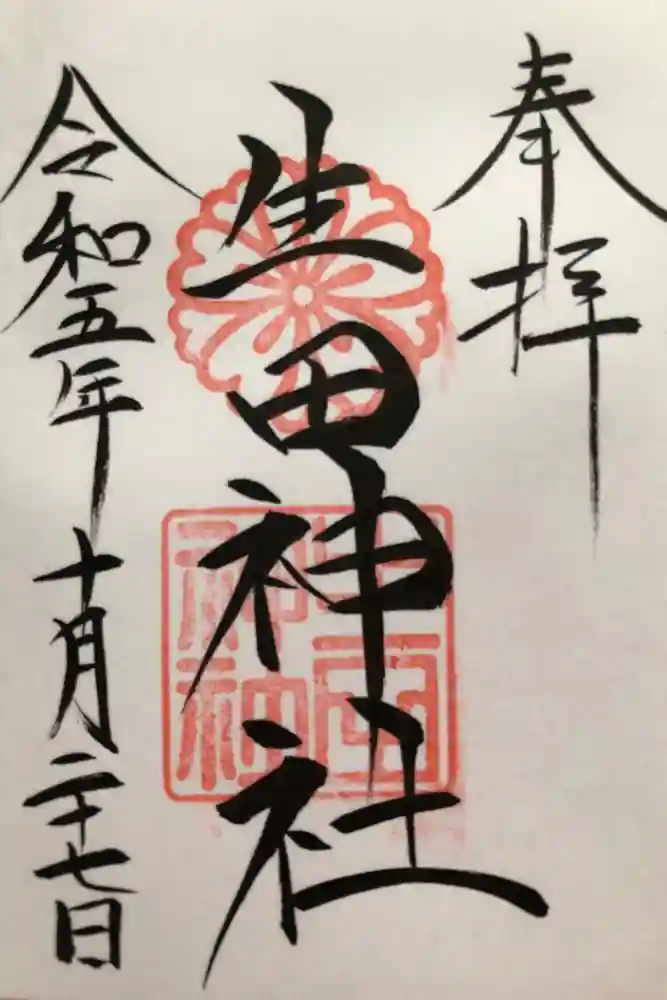 奉拝
生田神社
令和五年十月二十七日